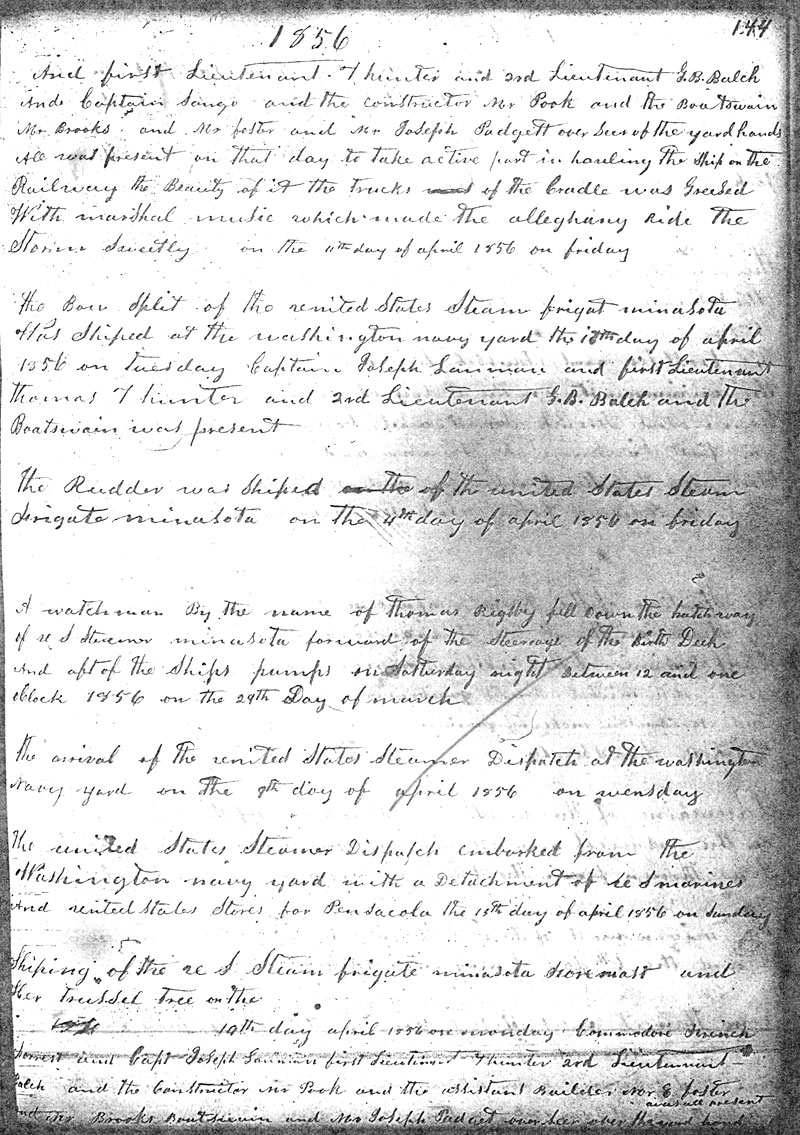 144
1856
And first Lieutenant T hunter and 2rd Lieutenant G.B. Balch
And Captain Sango and the constructor Mr Pook and the Boatswain
Mr Brooks and Mr foster and Mr Joseph Padgett over Seer of the yard hands
All was present on that day to take active part in hauling the Ship on the
Railway the Beauty of it the trucks of the Cradle was Greased
With marshal music which made the alleghany Ride the
Storm Sweetly on the 11th day of april 1856 on friday
the Bow Split of the united States Steam frigat minasota
Was Shiped at the washington navy yard the day of april
1856 on tuesday Captain Joseph Lanman and first Lieutenant
thomas T hunter and 2rd Lieutenant G.B. Balch and the
Boatswain was present
the Rudder was Shiped on the of the united States Steam
frigate minasota on the 4th day of april 1856 on friday
A watchman By the name of thomas Rigsby fell Down the hatch way
of u S Steamer minasota forward of the Steerage of the Birth Deck
And aft of the Ships pumps on Satturday night Between 12 and one
oClock 1856 on the 29th Day of march
the arrival of the united States Steamer Dispatch at the washington
Navy yard on the 9th day of april 1856 on wensday
the united States Steamer Dispatch embarked from the
Washington navy yard with a Detachment of u S marines
And united States Stores for Pensacola the 13th day of april 1856 on Sunday
Shiping of the u S Steam frigate minasota foremast and
Her trussel tree on the
14th day april 1856 on monday Commodore French
Forrest and Capt Joseph Lanman first Lieutenant T hunter 2rd Lieutenant
Balch and the Constructor mr Pook and the assistant Builder Mr E foster
was all present
and Mr Brooks Boatswain and Mr Joseph Padget over Seer over the yard hands